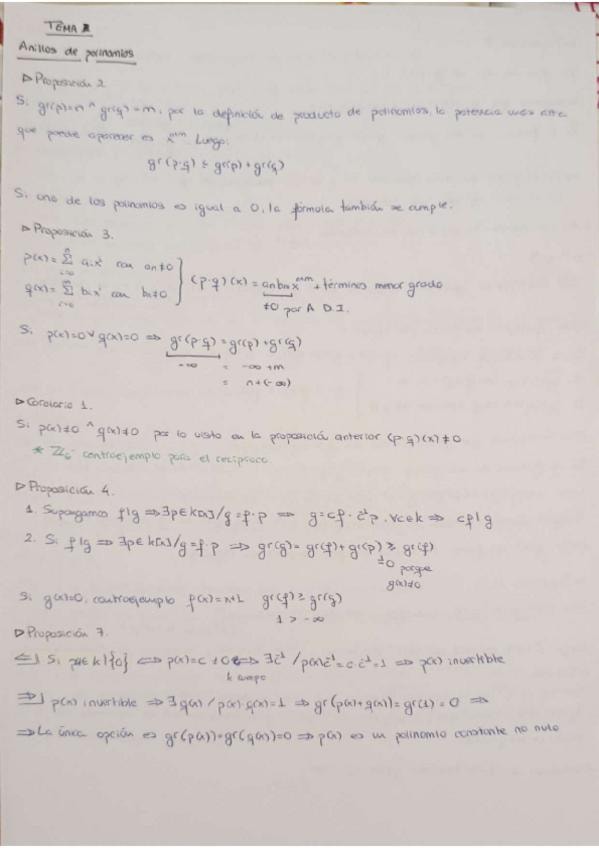 TEMA 2
Anillos de polinomios
▷ Proposición 2
Si gr(p)=n ^ gr(q)=m, por la definición de producto de polinomios, la potencia más alta
que puede aparecer es xⁿ⁺ᵐ. Luego:
gr(p·q) ≤ gr(p)+gr(q)
Si uno de los polinomios es igual a 0, la fórmula también se cumple.
▷ Proposición 3.
p(x)=Σ aᵢxⁱ con an≠0
q(x)=Σ bᵢxⁱ con bm≠0 } (p·q)(x) = anbmxⁿ⁺ᵐ + términos menor grado
≠0 por A D.I.
Si p(x)=0 ∨ q(x)=0 ⟹ gr(p·q) = gr(p)+gr(q)
-∞ = -∞+m
= n+(-∞)
▷ Corolario 1.
Si p(x)≠0 ^ q(x)≠0 por lo visto en la proposición anterior (p·q)(x)≠0
* Z₆ contraejemplo para el recíproco.
▷ Proposición 4.
1. Supongamos f|g ⟹ ∃p∈k[x]/g=f·p ⟹ g=cf·c⁻¹p, ∀c∈k ⟹ cf|g
2. Si f|g ⟹ ∃p∈k[x]/g=f·p ⟹ gr(g)=gr(f)+gr(p) ≥ gr(f)
≥0 porque
g(x)≠0
Si g(x)=0, contraejemplo f(x)=x+1 gr(f) ≥ gr(g)
1 > -∞
▷ Proposición 7.
⟸] Si p∈k\{0} ⟺ p(x)=c≠0 ⟺ ∃c⁻¹/p(x)c⁻¹=c·c⁻¹=1 ⟹ p(x) invertible
k cuerpo
⟹] p(x) invertible ⟹ ∃q(x)/p(x)·q(x)=1 ⟹ gr(p(x)+q(x))=gr(1)=0 ⟹
⟹ La única opción es gr(p(x))=gr(q(x))=0 ⟹ p(x) es un polinomio constante no nulo